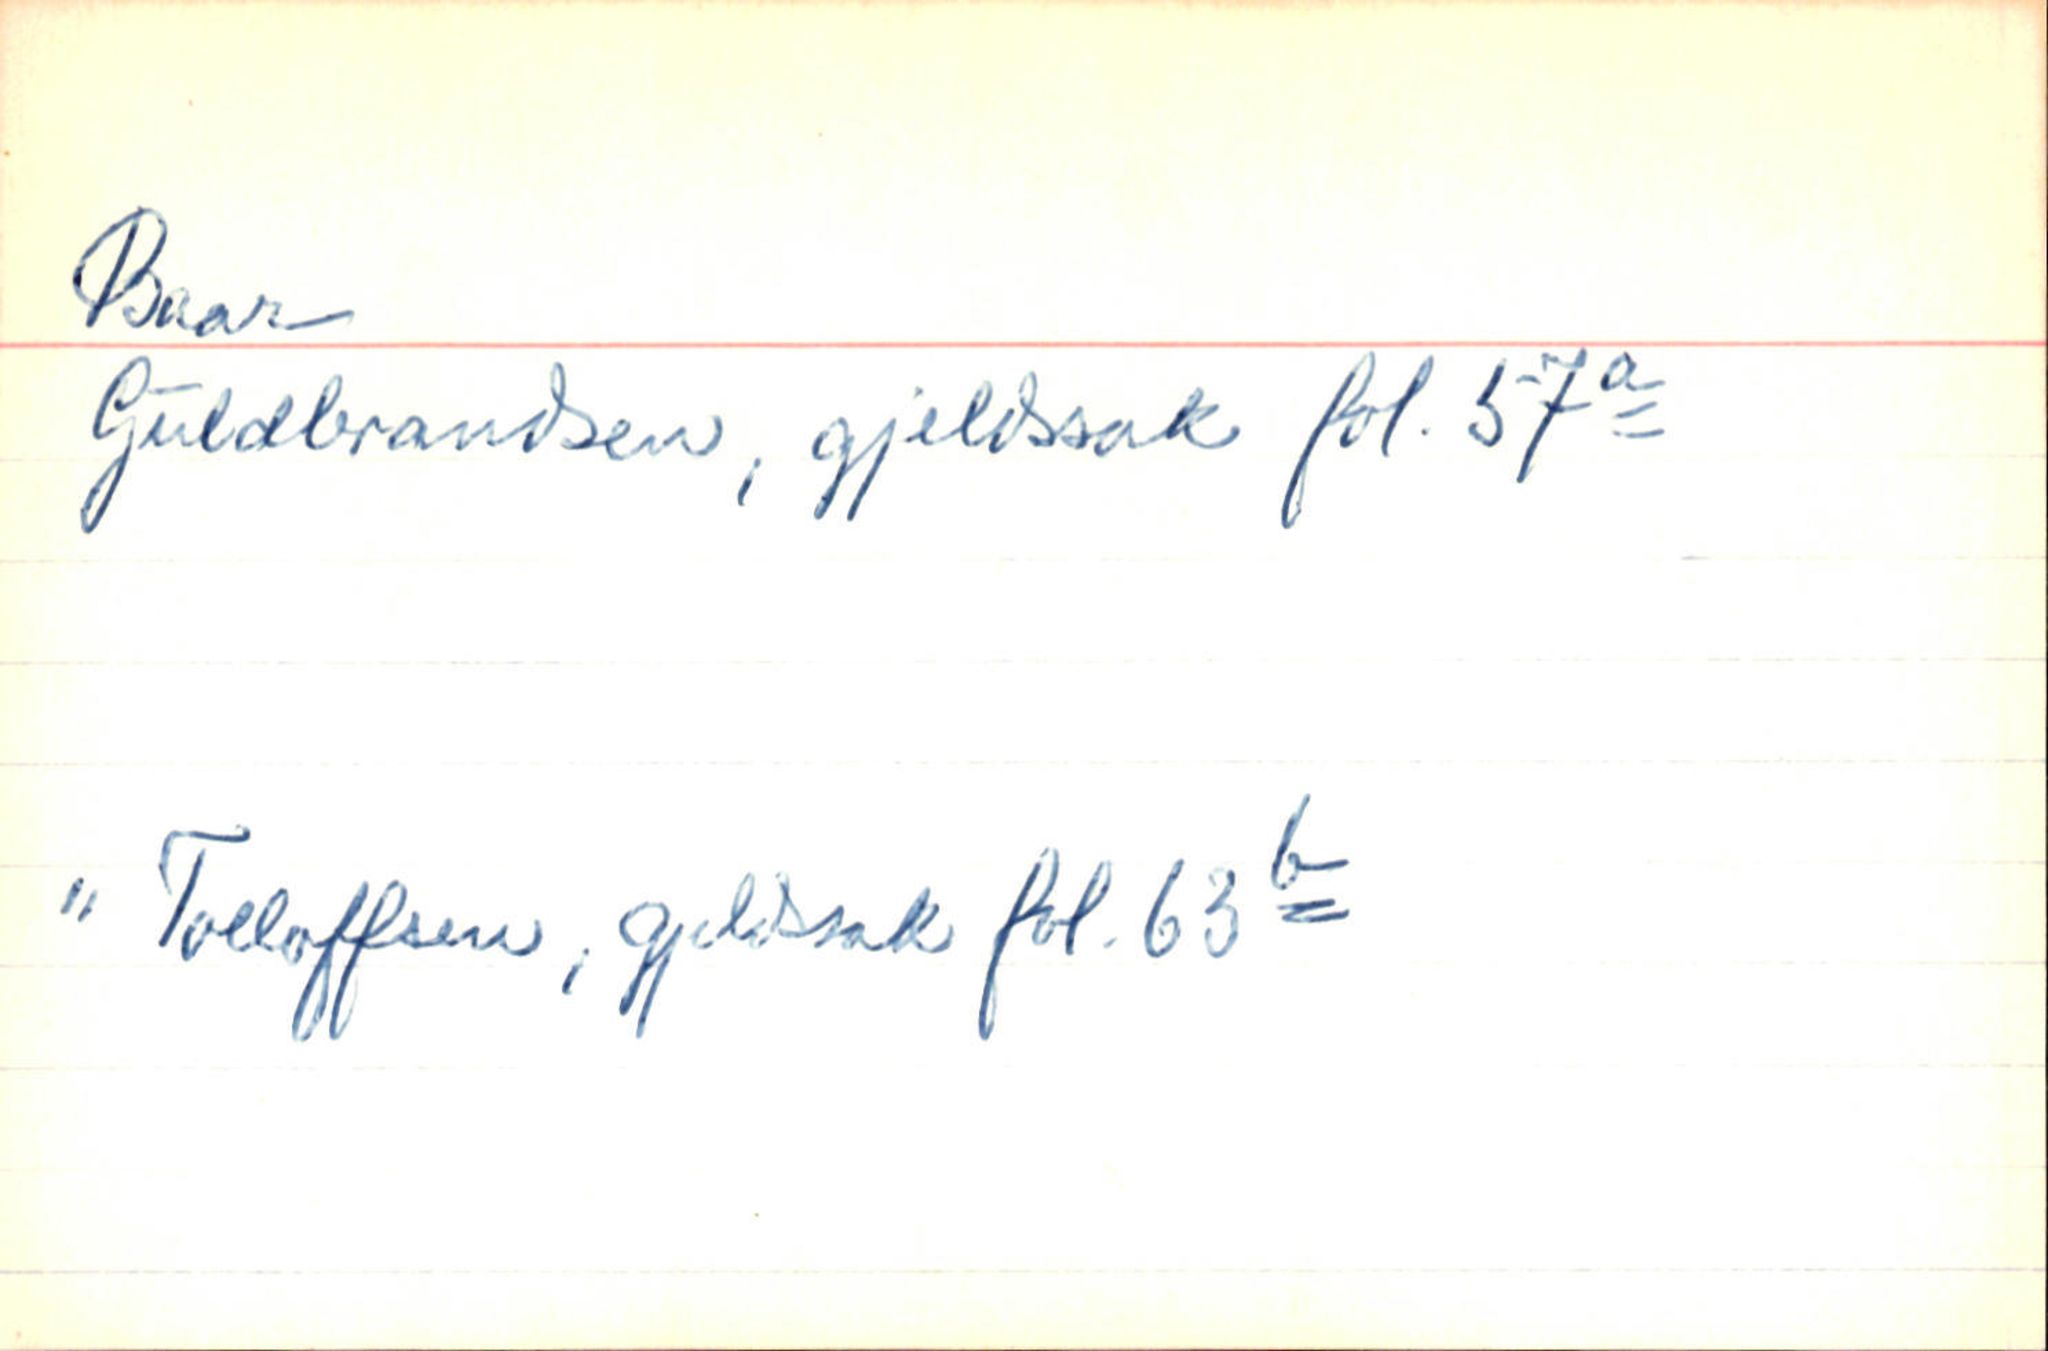 Baar
Guldbrandsen, gjeldssak fol. 57a
" Tolloffsen, gjeldsak fol. 63b